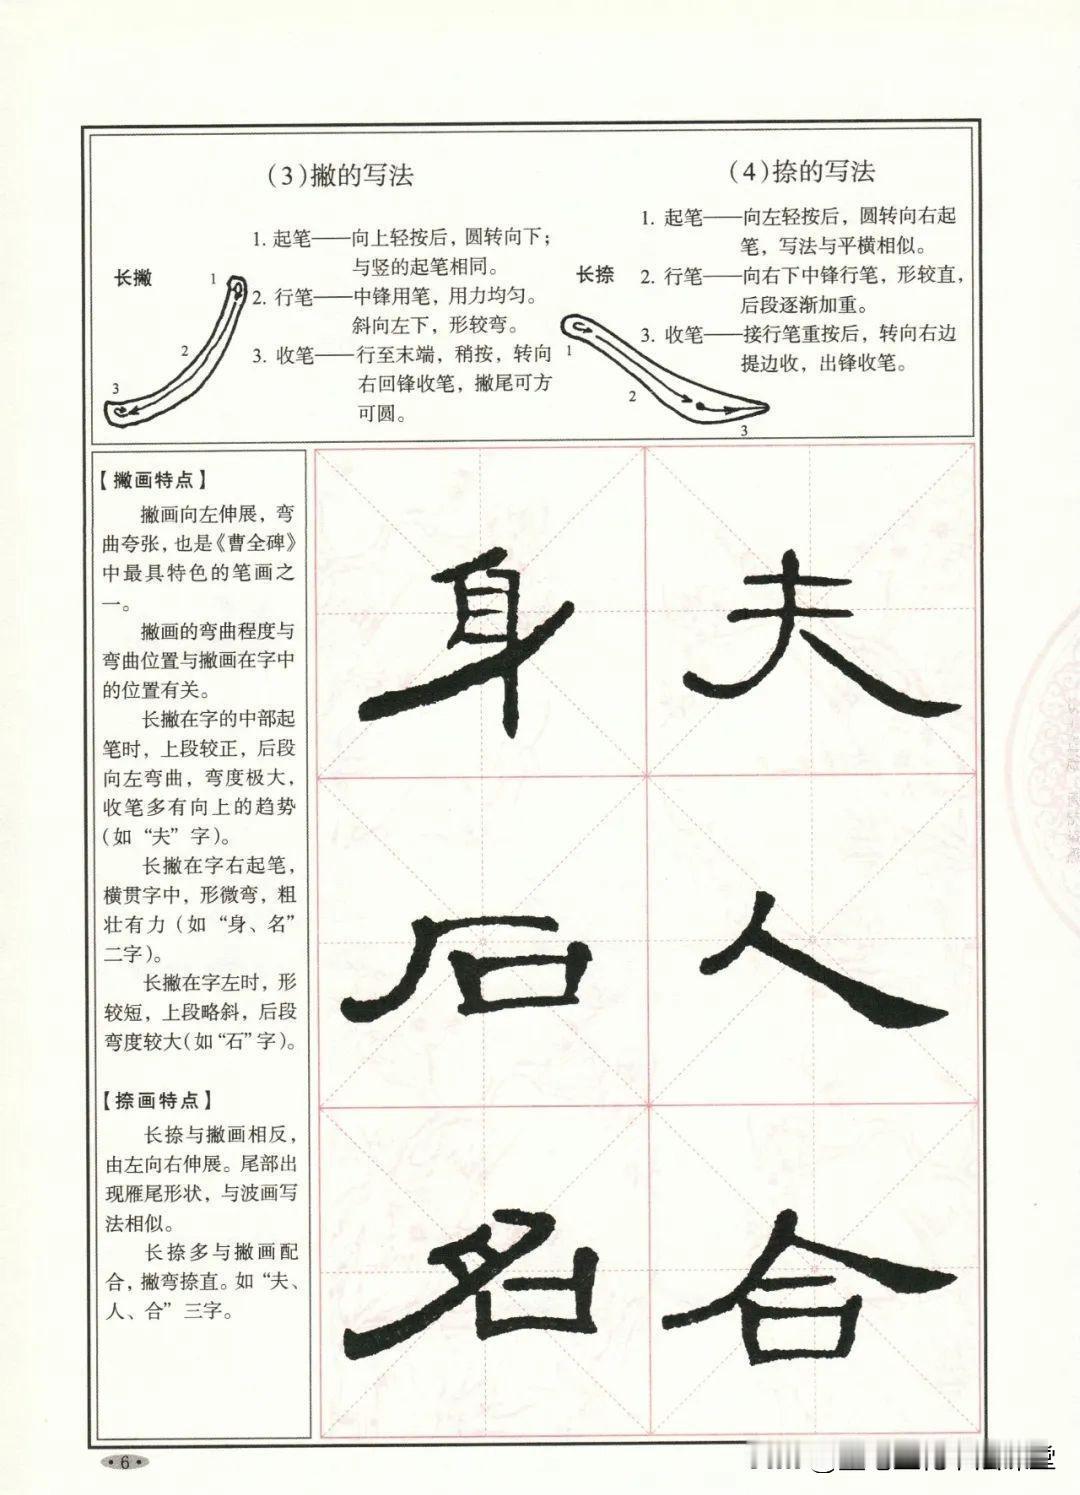 (3)撇的写法
长撇
1. 起笔——向上轻按后，圆转向下；
与竖的起笔相同。
2. 行笔——中锋用笔，用力均匀。
斜向左下，形较弯。
3. 收笔——行至末端，稍按，转向
右回锋收笔，撇尾可方
可圆。
1
2
3
(4)捺的写法
长捺
1. 起笔——向左轻按后，圆转向右起
笔，写法与平横相似。
2. 行笔——向右下中锋行笔，形较直，
后段逐渐加重。
3. 收笔——接行笔重按后，转向右边
提边收，出锋收笔。
1
2
3
【撇画特点】
撇画向左伸展，弯
曲夸张，也是《曹全碑》
中最具特色的笔画之
一。
撇画的弯曲程度与
弯曲位置与撇画在字中
的位置有关。
长撇在字的中部起
笔时，上段较正，后段
向左弯曲，弯度极大，
收笔多有向上的趋势
（如“夫”字）。
长撇在字右起笔，
横贯字中，形微弯，粗
壮有力（如“身、名”
二字）。
长撇在字左时，形
较短，上段略斜，后段
弯度较大（如“石”字）。
【捺画特点】
长捺与撇画相反，
由左向右伸展。尾部出
现雁尾形状，与波画写
法相似。
长捺多与撇画配
合，撇弯捺直。如“夫、
人、合”三字。
身 夫
石 人
名 合
·6·